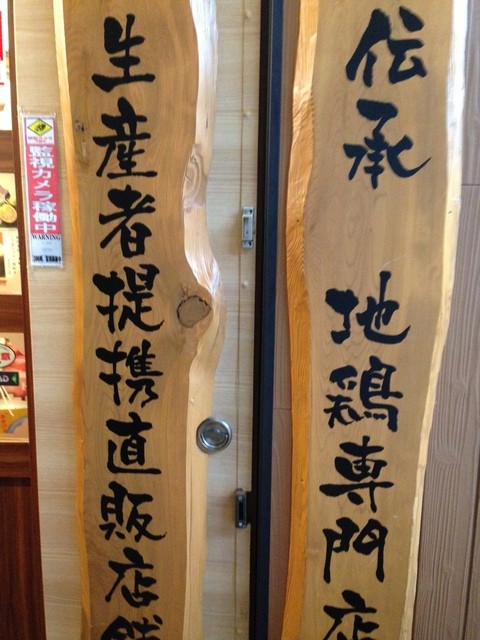 伝承 地鶏専門店
生産者提携直販店舗
監視カメラ稼働中
WARNING